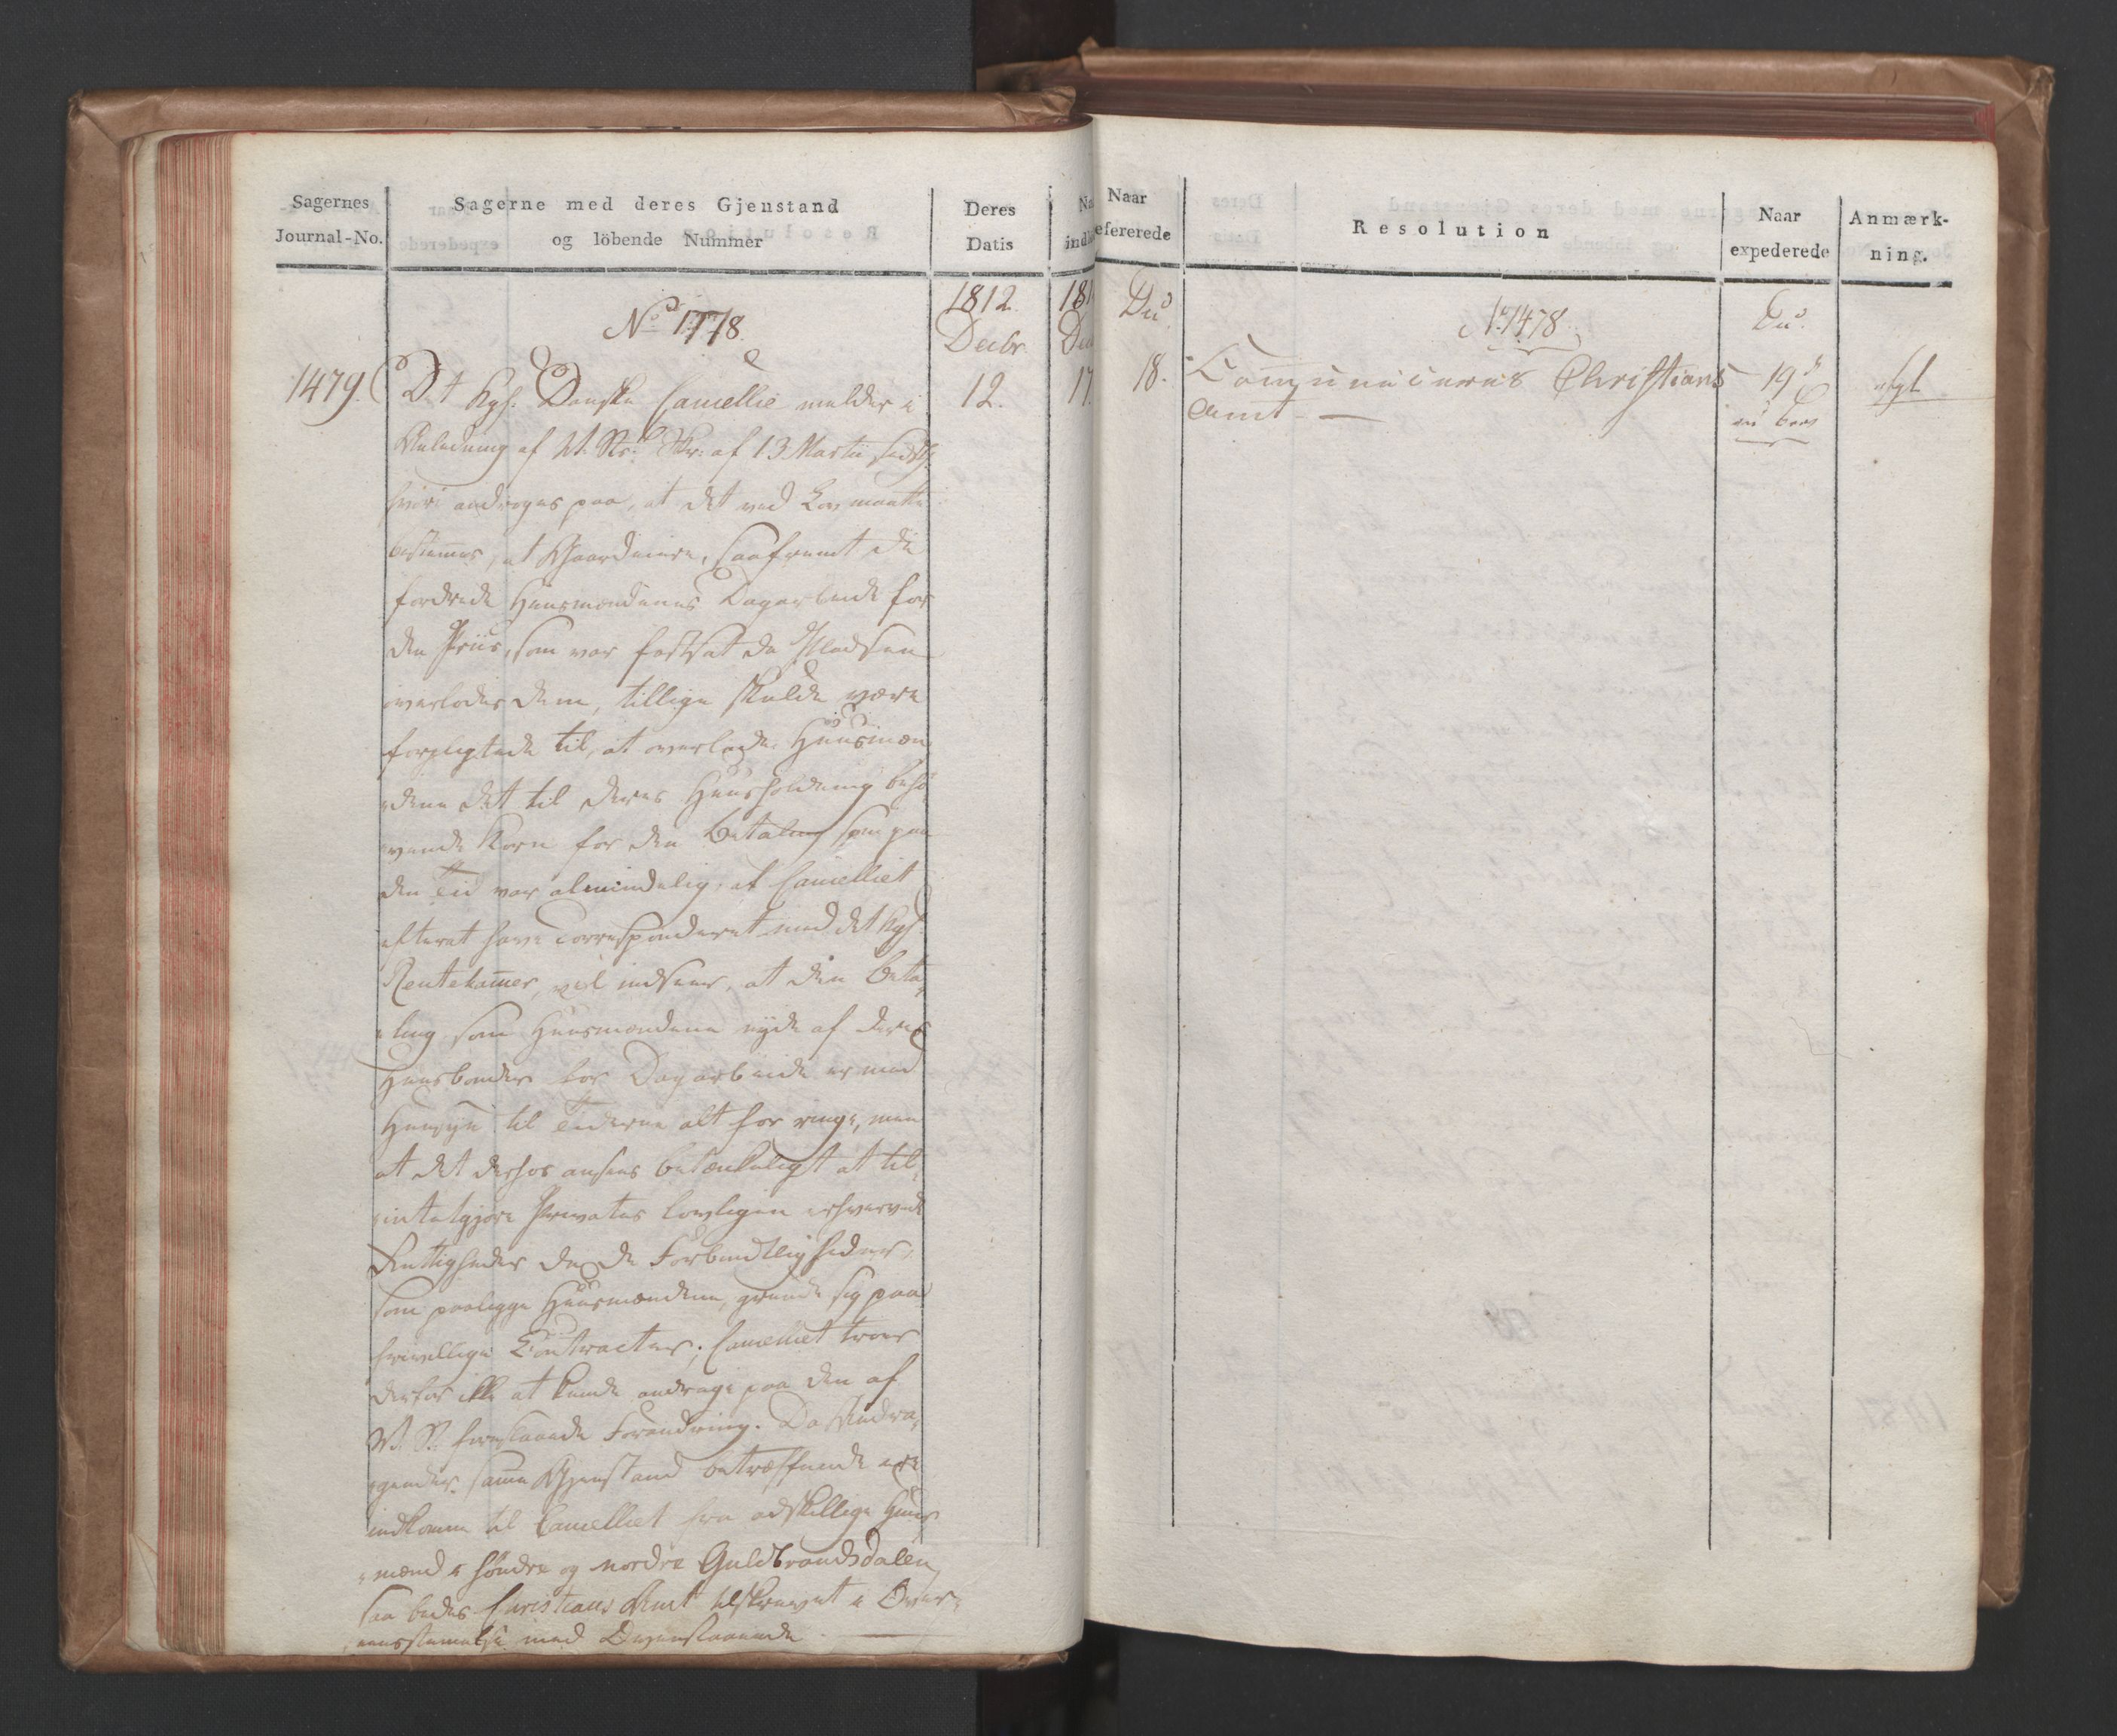 Sagernes
Journal-No.
Sagerne med deres Gjenstand
og löbende Nummer
Deres
Datis
Naar
refererede
Resolution
Naar
expederede
Anmærk-
ning.
No 1778.
1812.
Decbr
1479.
12.
17.
Det Kgl. Danske Cancellie melder i
Anledning af V. St. Skr. af 13 Martii sidstl.
hvori androges paa, at det ved Lov maatte
bestemes, at Gaardeiere, saafremt de
fordrede Huusmændenes Dagarbeide for
den Priis, som var fastsat da Pladsen
overlodes dem, tillige skulde være
forpligtede til, at overlade Huusmæn
dene det til deres Huusholdning behø
vende Korn for den Betaling som paa
den Tid var almindelig, at Cancelliet
efterat have corresponderet med det Kgl.
Rentekamer, vel indseer, at den Beta
ling som Huusmændene nyde af deres
Huusbonder for Dagarbeide er med
Hensyn til Tiderne alt for ringe, men
at det derhos ansees betænkeligt at til
intetgjøre Privates lovligen erhvervede
Rettigheder da de Forbindtligheder,
som paaligge Huusmændene, grunde sig paa
frivillige Contracter; Cancelliet troer
derfor ikke at kunde andrage paa den af
V. S. foreslaaede Forandring. Da Andra
gender samme Gjenstand betræffende ere
indkomne til Cancelliet fra adskillige Huus
mænd i søndre og nordre Guldbrandsdalen,
saa bedes Christians Amt tilskrevet i Over
eensstemelse med Ovenstaaende
Du
18.
No 1478.
Comuniceres Christians
Amt
Du.
19
afgl